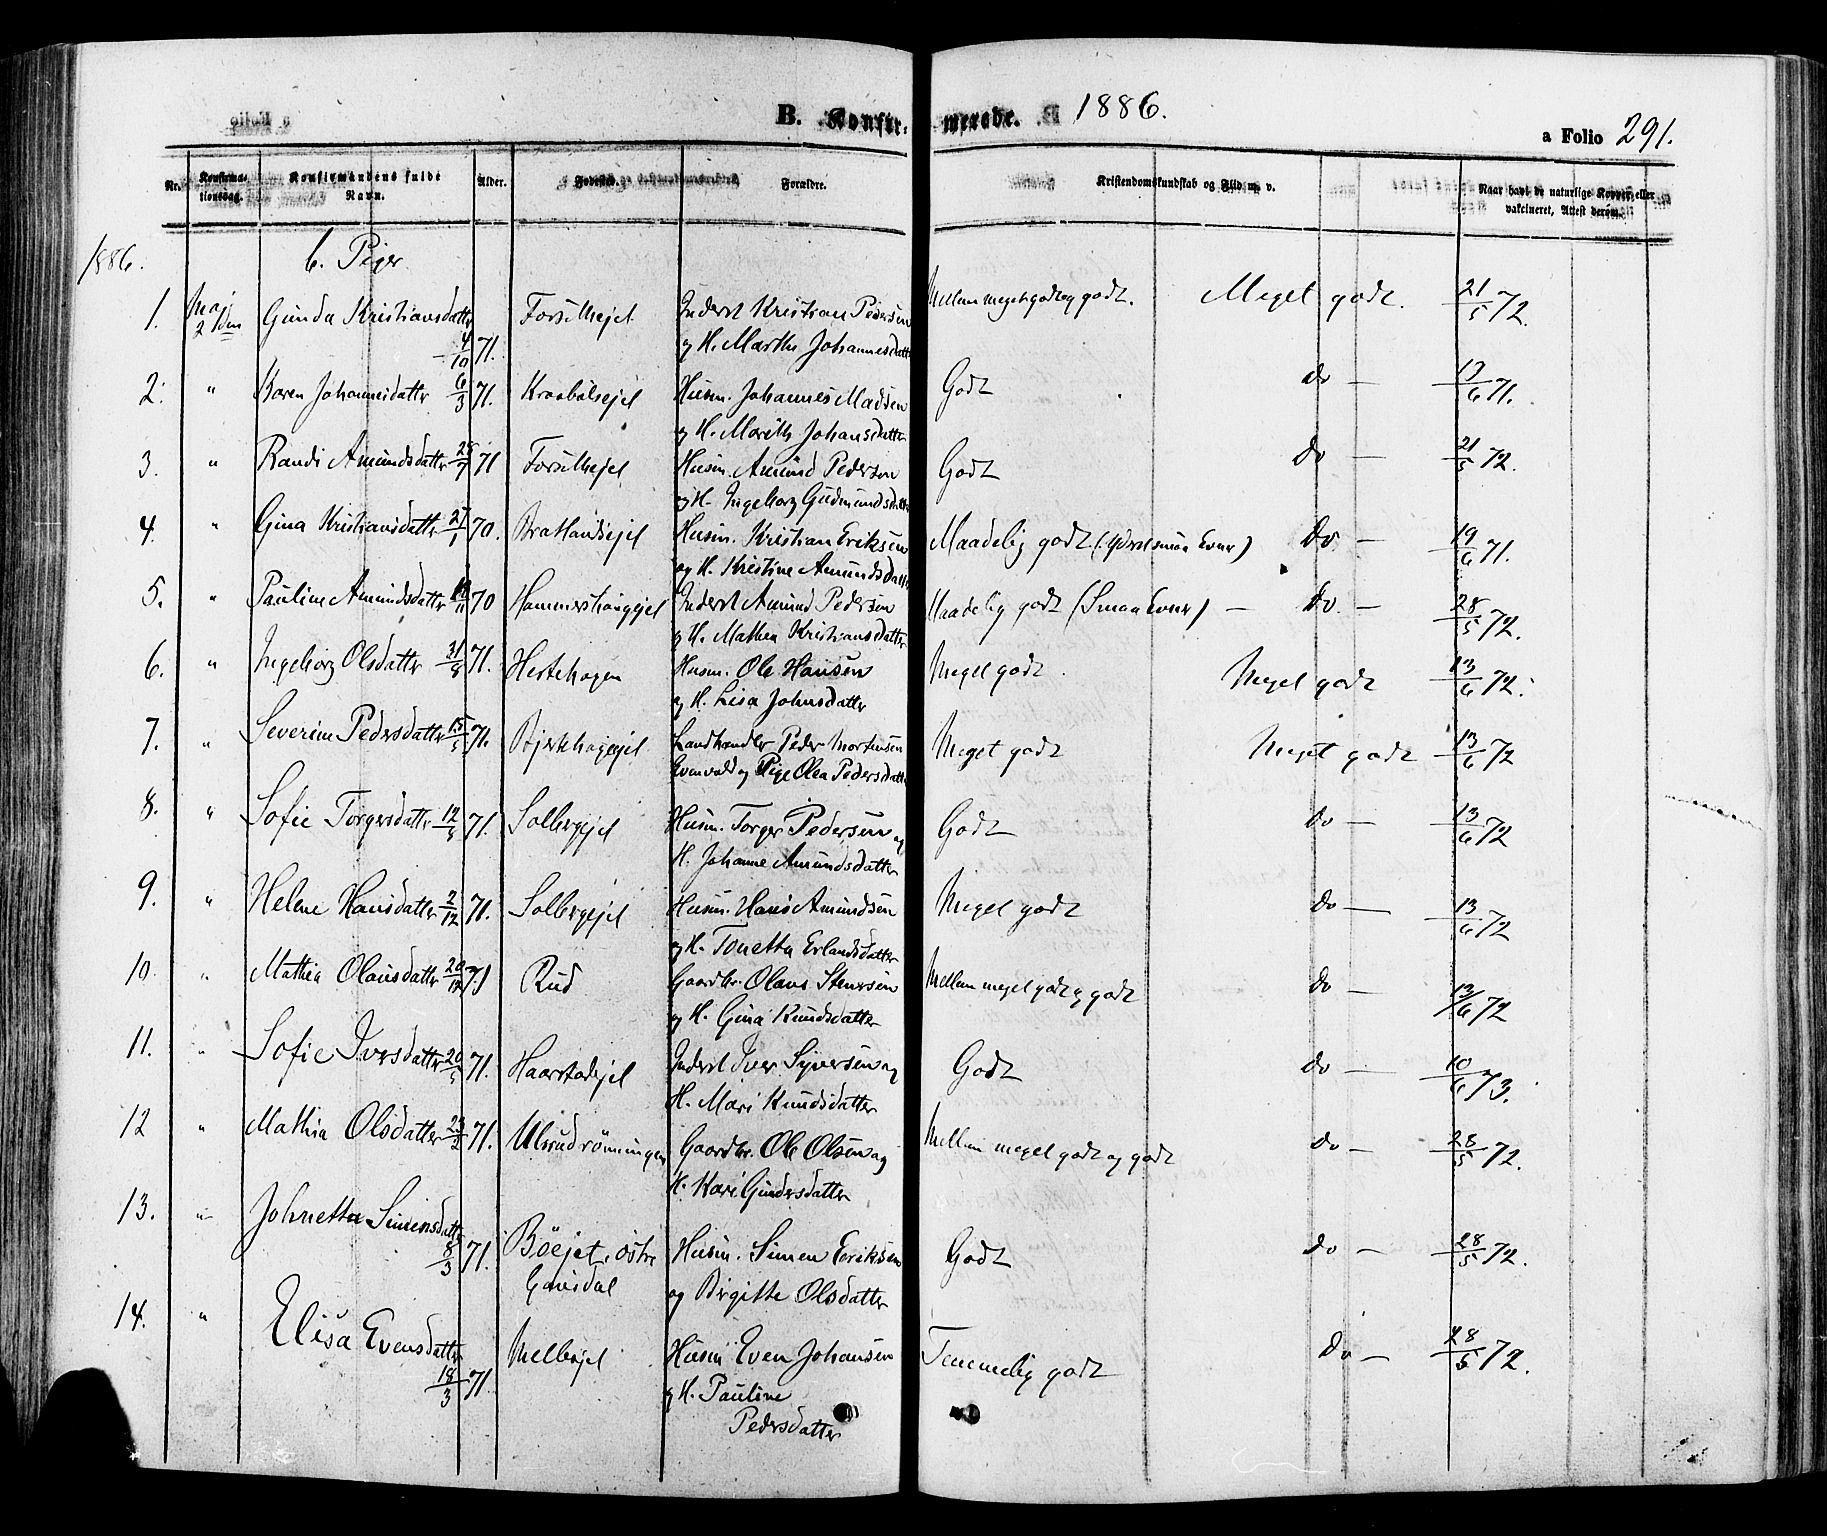 B. Konfir- merede. 1886.
a Folio 291.
Nr. Konfirma-tionsdag. Konfirmandens fulde Navn. Alder. Fødested. Forældre. Kristendomskundskab og Flid m. v. Naar havt de naturlige Kopper eller vakcineret, Attest derom.
1886. b. Piger
1. Maj 2den Gunda Kristiansdatter 4/10 71. Forsethejet Inderst Kristian Pedersen Mellem meget godt og godt. Meget godt. 21/5 72.
og H. Marthe Johannesdatter
2. " Karen Johannesdatter 6/3 71. Kraabølsejet Husm. Johannes Madsen Godt do — 17/6 71.
og H. Marith Johansdatter
3. " Randi Amundsdatter 28/7 71 Forsethejet Husm. Amund Pedersen Godt Do — 21/5 72.
og H. Ingeborg Gudmundsdatter
4. " Gina Kristiansdatter 27/1 70. Husm. Kristian Eriksen Maadelig godt (: smaa Evner) Do — 19/6 71.
og H. Kristine Amundsdatter
5. " Pauline Amundsdatter 70 Inderst Amund Pedersen Maadelig godt (Smaa Evner) — Do. — 28/5 72.
og H. Mathea Kristiansdatter
6. " Ingeborg Olsdatter 71. Hestehagen Husm. Ole Hansen Meget godt. Meget godt 13/6 72.
og H. Lisa Johnsdatter
7. " Severine Pedersdatter 15/5 71. Landhandler Peder Mortensen Meget godt Meget godt 13/6 72
Evenvold og Pige Olea Pedersdatter
8. " Sofie Torgersdatter 71. Solbergejet Husm. Torger Pedersen og Godt do — 13/6 72
H. Johanne Amundsdatter
9. " Helene Hansdatter 2/12 71. Solbergejet Husm. Hans Amundsen Meget godt do — 13/6 72
og H. Tonetta Erlandsdatter
10. " Mathea Olausdatter 20/12 71 Rud Gaardbr. Olaus Stensen Mellem meget godt og godt do — 13/6 72
og H. Gina Knudsdatter
11. " Sofie Iversdatter 20/5 71. Haarstadejet Inderst Iver Syversen og Godt do — 10/6 73.
H. Mari Knudsdatter
12 " Mathea Olsdatter 23/2 71. Ulsrudrønningen Gaardbr. Ole Olsen og Mellem meget godt og godt do — 28/5 72.
H. Kari Gundersdatter
13. " Johnetta Simensdatter 8/3 71. Bøejet, østre Husm. Simen Eriksen Godt do — 28/5 72.
Gausdal og Birgitte Olsdatter
14. " Elisa Evensdatter 18/3 71. Melbøjet Husm Even Johansen Temmelig godt do — 28/5 72.
og H. Pauline
Pedersdatter